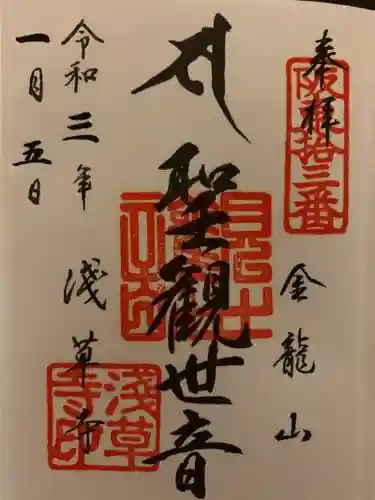 奉拝
坂東拾三番
金龍山
聖觀世音
淺草寺
淺草寺印
令和三年
一月五日